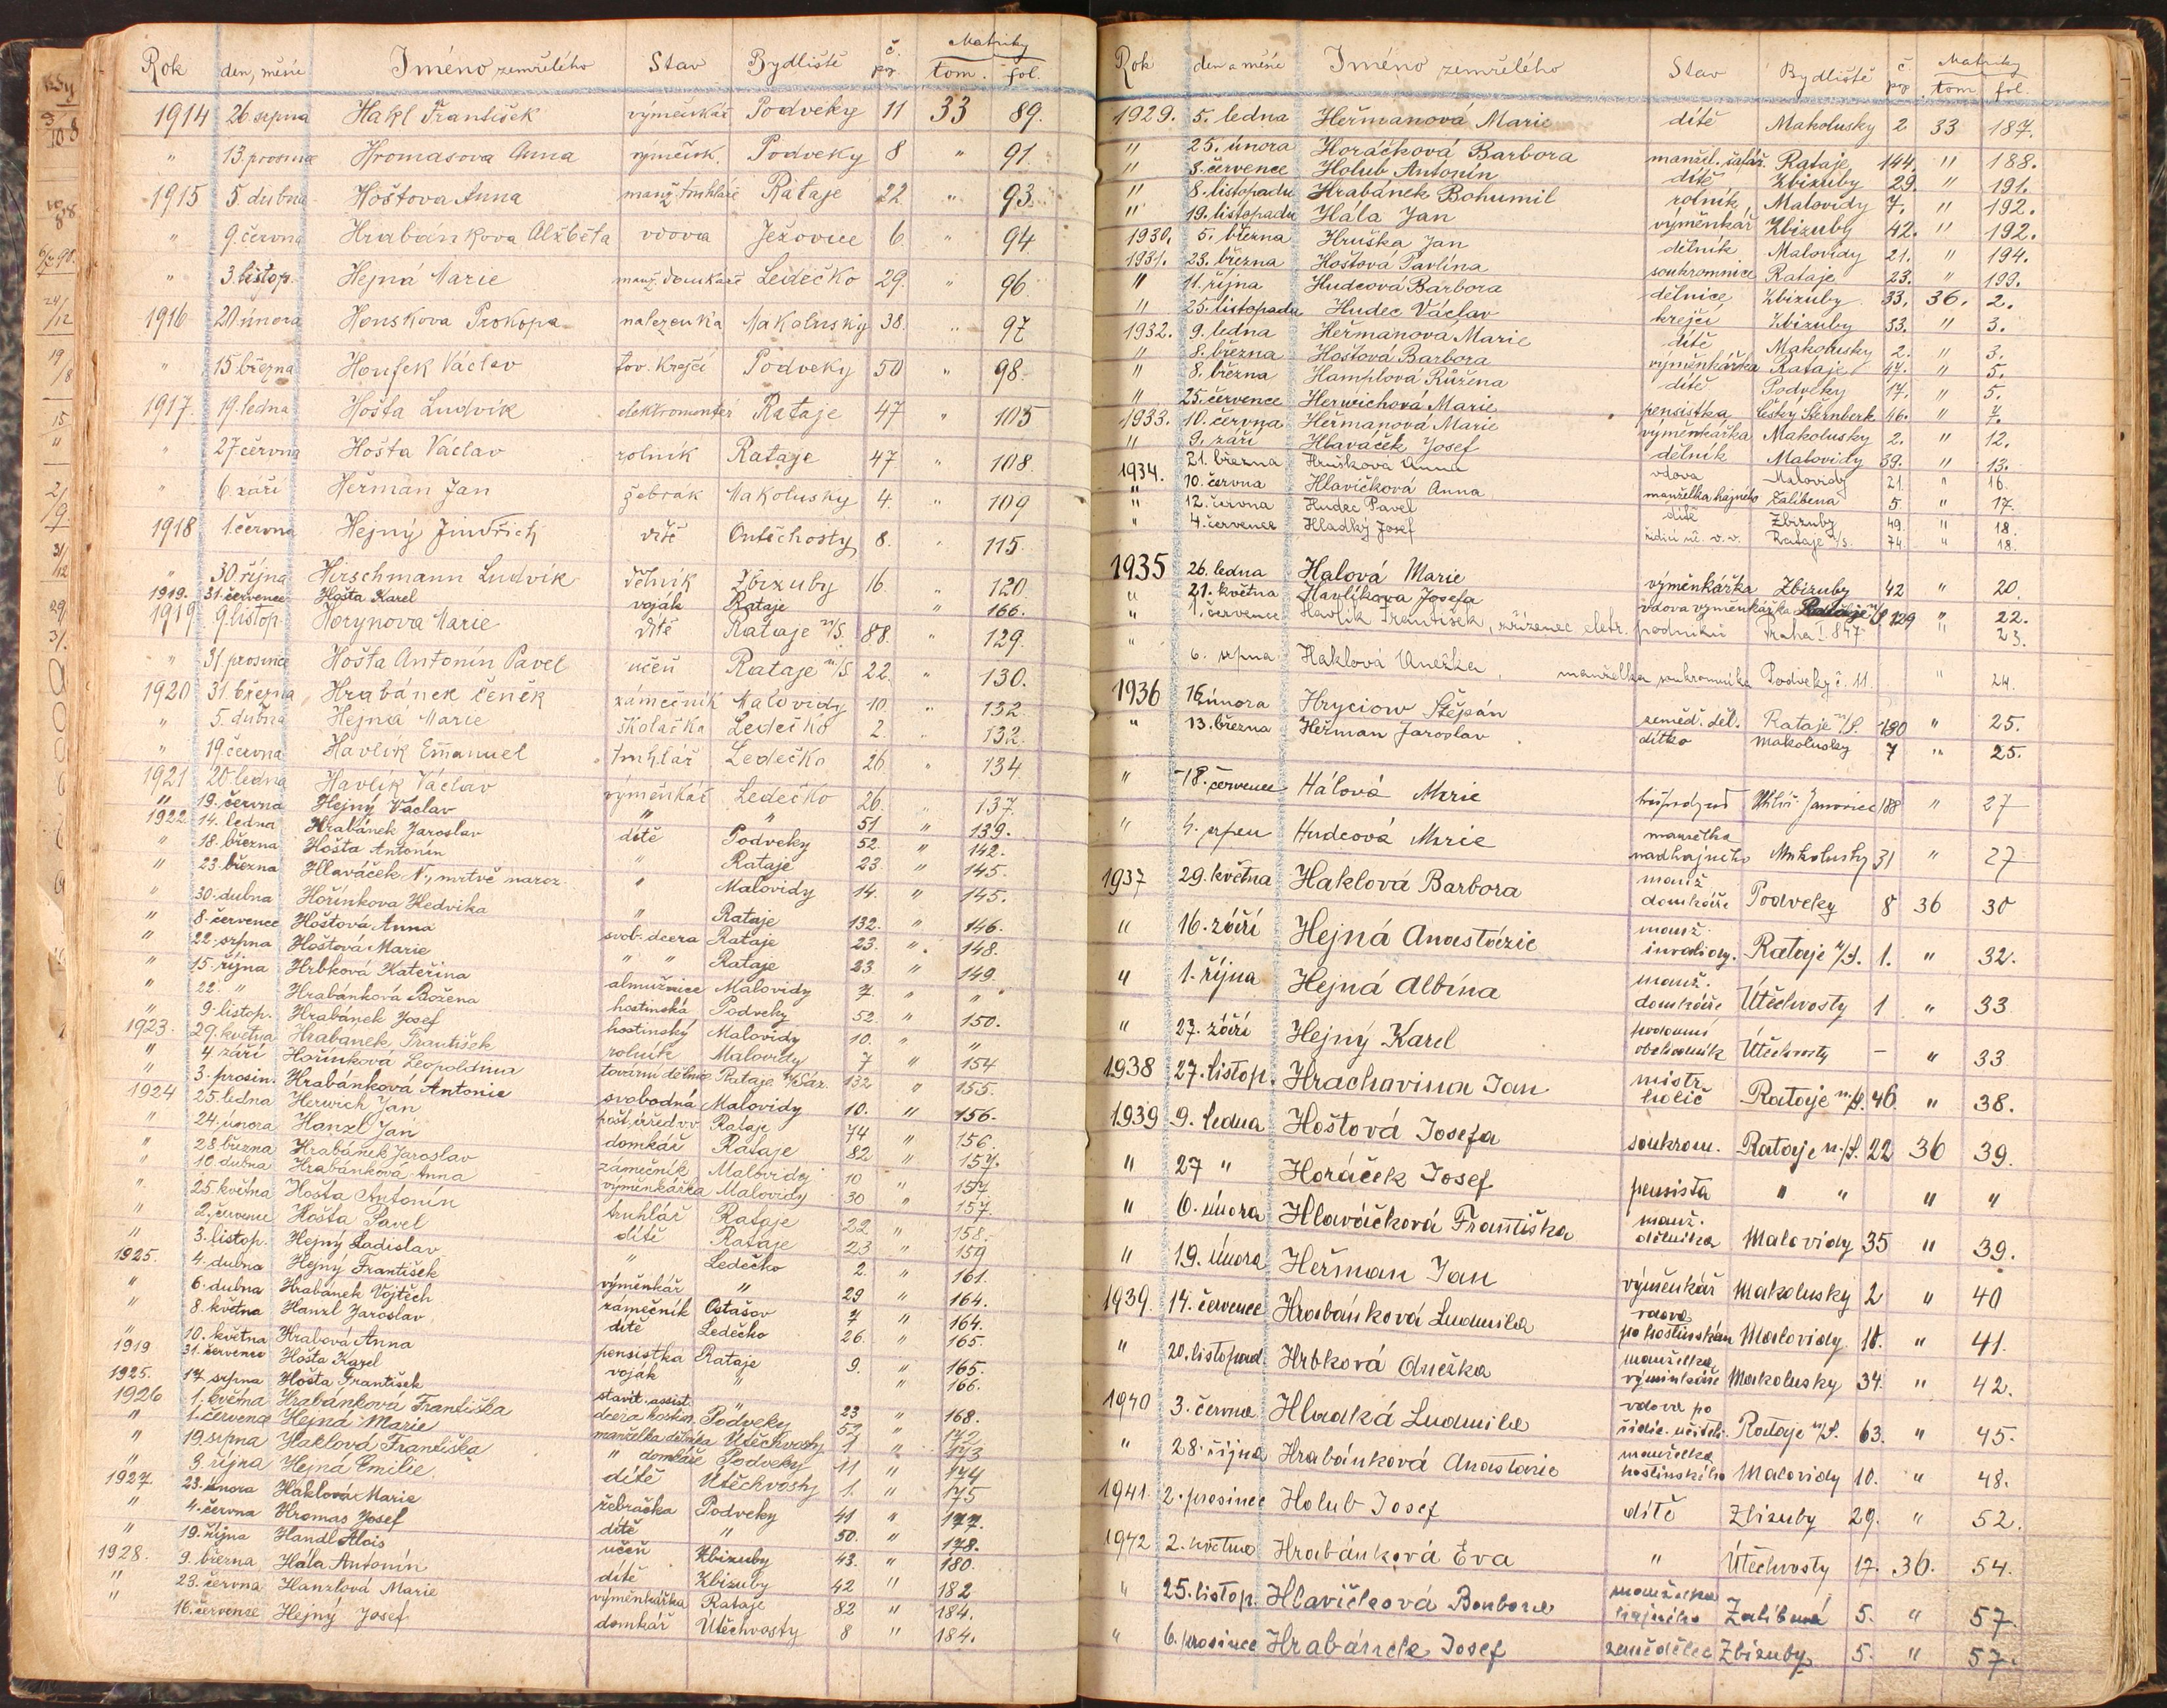 Matriky
Rok den, měsíc Jméno zemřelého Stav Bydliště č. pp. tom. fol.
1914 26. srpna Hakl František výměnkář Podveky 11 33 89.
" 13. prosince Hromasova Anna výměnk. Podveky 8 " 91.
1915 5. dubna Hoštova Anna manž. truhláře Rataje 22. " 93.
" 9. června Hrabánkova Alžběta vdova Ježovice 6. " 94.
" 3. listop. Hejná Marie manž. domkáře Ledečko 29. " 96
1916 20 února Houskova Prokopa nalezenka Makolusky 38. " 97
" 15 března Houfek Václav tov. krejčí Podveky 50 " 98.
1917. 19. ledna Hošta Ludvík elektromontér Rataje 47 " 105
" 27 června Hošta Václav rolník Rataje 47 " 108.
" 6. září Heřman Jan žebrák Makolusky 4. " 109
1918 1. června Hejný Jindřich dítě Outěchosty 8. " 115.
" 30. října Hirschmann Ludvík dělník Zbizuby 16. " 120.
1919. 31. července Hošta Karel voják Rataje " 166.
1919 9. listop. Horynova Marie dítě Rataje n/S. 88. " 129.
" 31 prosince Hošta Antonín Pavel učeň Rataje n/S. 22. " 130.
1920 31. března Hrabánek Čeněk zámečník Malovidy 10. " 132
" 5. dubna Hejná Marie školačka Ledečko 2. " 132.
" 19. června Havlík Emanuel truhlář Ledečko 26. " 134
1921 20 ledna Havlík Václav výměnkář Ledečko 26. " 137.
" 19. června Hejný Václav " " 51 " 139.
1922. 14. ledna Hrabánek Jaroslav dítě Podveky 52. " 142.
" 18. března Hošta Antonín " Rataje 23 " 145.
" 23. března Hlaváček N., mrtvě naroz. " Malovidy 14. " 145.
" 30. dubna Hořínkova Hedvika " Rataje 132. " 146.
" 8. července Hoštová Anna svob. dcera Rataje 23. " 148.
" 22. srpna Hoštová Marie " " Rataje 23 " 149.
" 15. října Hrbková Kateřina almužnice Malovidy 7. " "
" 22. " Hrabánková Božena hostinská Podveky 52. " 150.
" 9. listop. Hrabánek Josef hostinský Malovidy 10. " "
1923. 29. května Hrabanek František rolník Malovidy 7 " 154
" 4 září Hořínková Leopoldina tovární dělnice Rataje n/Sáz. 132 " 155.
" 3. prosin. Hrabánková Antonie svobodná Malovidy 10. " 156.
1924 25. ledna Herwich Jan pošt. úřed. v.v. Rataje 74 " 156.
" 24. února Hanzl Jan domkář Rataje 82 " 157.
" 28. března Hrabánek Jaroslav zámečník Malovidy 10 " 157
" 10. dubna Hrabánková Anna výměnkářka Malovidy 30 " 157.
" 25. května Hošta Antonín truhlář Rataje 22 " 158.
" 2. července Hošta Pavel dítě Rataje 23 " 159
" 3. listop. Hejný Ladislav " Ledečko 2. " 161.
1925. 4. dubna Hejný František výměnkář " 29 " 164.
" 6. dubna Hrabánek Vojtěch zámečník Ostašov 7 " 164.
" 8. května Hanzl Jaroslav dítě Ledečko 26. " 165.
" 10. května Hrabová Anna pensistka Rataje 9. " 165.
1919 31. července Hošta Karel voják " " 166.
1925. 17. srpna Hošta František stavit. assist. " 23 " 168.
1926 1. května Hrabánková Františka dcera hostin. Podveky 52 " 172
" 1. června Hejná Marie manželka dělníka Útěchvosty 1 " 173
" 19. srpna Haklová Františka " domkáře Podveky 11 " 174
" 3 října Hejná Emilie dítě Útěchvosty 1. " 175
1927. 23. února Haklová Marie žebračka Podveky 41 " 177.
" 4. června Hromas Josef dítě " 50. " 178.
" 19. října Handl Alois učeň Zbizuby 43. " 180.
1928. 9. března Hála Antonín dítě Zbizuby 42 " 182
" 23. června Hanzlová Marie výměnkářka Rataje 82 " 184.
" 16. července Hejný Josef domkář Útěchvosty 8 " 184.
Matriky
Rok den a měsíc Jméno zemřelého Stav Bydliště č. pp tom fol.
1929. 5. ledna Heřmanová Marie dítě Makolusky 2 33 187.
" 25. února Horáčková Barbora manžel. šafář. Rataje 144. " 188.
" 8. července Holub Antonín dítě Zbizuby 29. " 191.
" 8. listopadu Hrabánek Bohumil rolník Malovidy 7. " 192.
" 19. listopadu Hála Jan výměnkář Zbizuby 42. " 192.
1930. 5. března Hruška Jan dělník Malovidy 21. " 194.
1931. 23. března Hoštová Pavlína soukromnice Rataje 23. " 199.
" 11. října Hudcová Barbora dělnice Zbizuby 33. 36. 2.
" 25. listopadu Hudec Václav krejčí Zbizuby 33. " 3.
1932. 9. ledna Heřmanová Marie dítě Makolusky 2. " 3.
" 8. března Hoštová Barbora výměnkářka Rataje 47. " 5.
" 8. března Hamplová Růžena dítě Podveky 17. " 5.
" 25. července Herwichová Marie pensistka Český Šternberk 46. " 7.
1933. 10. června Heřmanová Marie výměnkářka Makolusky 2. " 12.
" 9. září Hlaváček Josef dělník Malovidy 39. " 13.
1934. 21. března Hrušková Anna vdova Malovidy 21. " 16.
" 10. června Hlavičková Anna manželka hajného Zalíbená 5 " 17.
" 12. června Hudec Pavel dítě Zbizuby 49. " 18.
" 4. července Hladký Josef řídící uč. v. v. Rataje n/S. 74. " 18.
1935 26. ledna Halová Marie výměnkářka Zbizuby 42 " 20.
" 21. května Havlíkova Josefa vdova výměnkářka Rataje n/S 129 " 22.
" 1. července Havlík František, zřízenec eletr. podniků Praha I. 847 " 23.
" 6. srpna Haklová Anežka, manželka soukromníka Podveky č. 11. " 24.
1936 16. února Hryciow Štěpán zeměd. děl. Rataje n/S. 180 " 25.
" 13. března Heřman Jaroslav dítko Makolusky 7 " 25.
" 18. července Hálová Marie Uhlíř. Janovice 188 " 27
" 4. srpen Hudcová Marie manželka nadhajného Makolusky 31 " 27
1937 29. května Haklová Barbora manž. domkáře Podveky 8 36 30
" 16. září Hejná Anastázie manž. invalidy. Rataje n/S. 1. " 32.
" 1. října Hejná Albina manž. domkáře Útěchvosty 1 " 33
" 27. září Hejný Karel podomní obchodník Útěchvosty - " 33
1938 27. listop. Hrachovina Jan mistr holič Rataje n./S. 46. " 38.
1939 9. ledna Hoštová Josefa soukrom. Rataje n./S. 22 36 39.
" 27 " Horáček Josef pensista " " " "
" 6. února Hlaváčková Františka manž. dělníka Malovidy 35 " 39.
" 19. února Heřman Jan výměnkář Makolusky 2 " 40
1939. 14. července Hrabánková Ludmila vdova po hostinském Malovidy 10. " 41.
" 20. listopad. Hrbková Anežka manželka výměnkáře Makolusky 34. " 42.
1940 3. června Hladká Ludmila vdova po řídíc. učiteli. Rataje n/S. 63. " 45.
" 28. října Hrabánková Anastazie manželka hostinského Malovidy 10. " 48.
1941. 2. prosince Holub Josef dítě Zbizuby 29. " 52.
1942 2. května Hrabánková Eva " Útěchvosty 17. 36. 54.
" 25. listop. Hlavičková Barbora manželka hajného Zalíbená 5. " 57.
" 6. prosince Hrabánek Josef zemědělec Zbizuby 5. " 57.